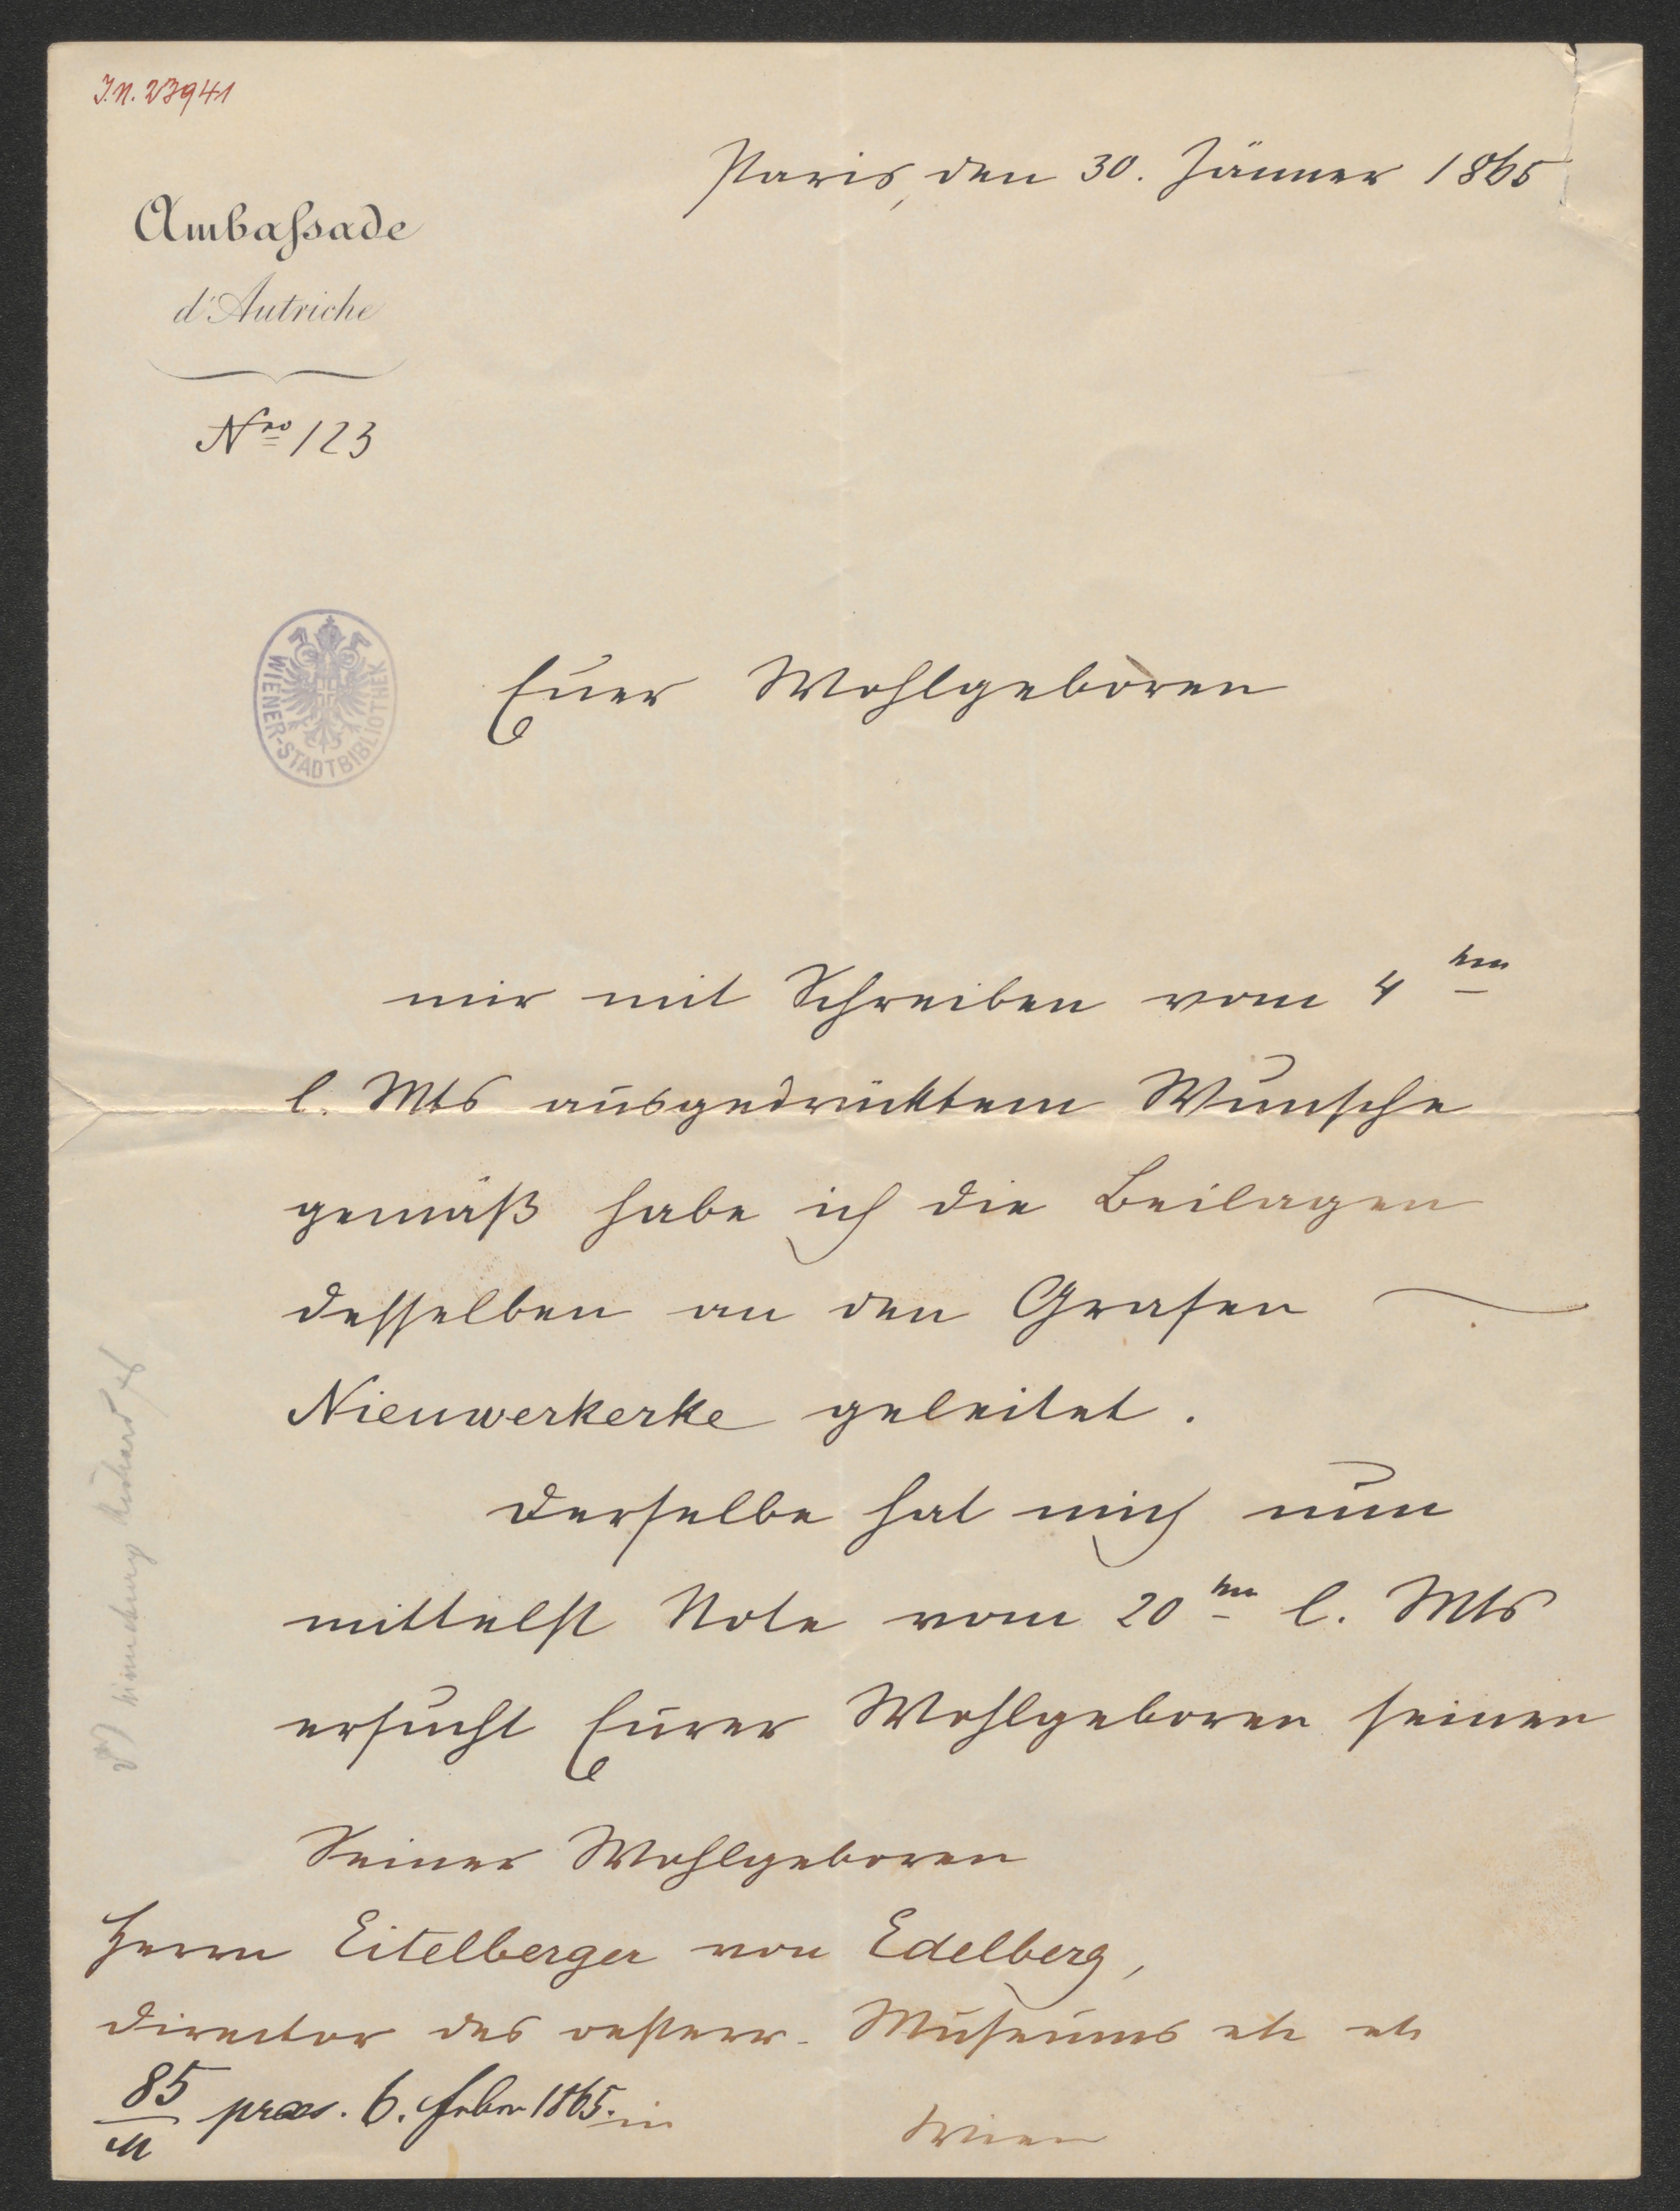 J.N. 23941
Paris, den 30. Jänner 1865
Ambassade
d'Autriche
Nro 123
WIENER-STADTBIBLIOTHEK
Euer Wohlgeboren
mir mit Schreiben vom 4ten
l. Mts ausgedrücktem Wunsche
gemäß habe ich die Beilagen
desselben an den Grafen
Nieuwerkerke geleitet.
Derselbe hat mich nun
mittelst Note vom 20ten l. Mts
ersucht Eurer Wohlgeboren seinen
Seiner Wohlgeboren
Herrn Eitelberger von Edelberg,
Director des oesterr. Museums etc etc
85/M praes. 6. Febr 1865. in Wien